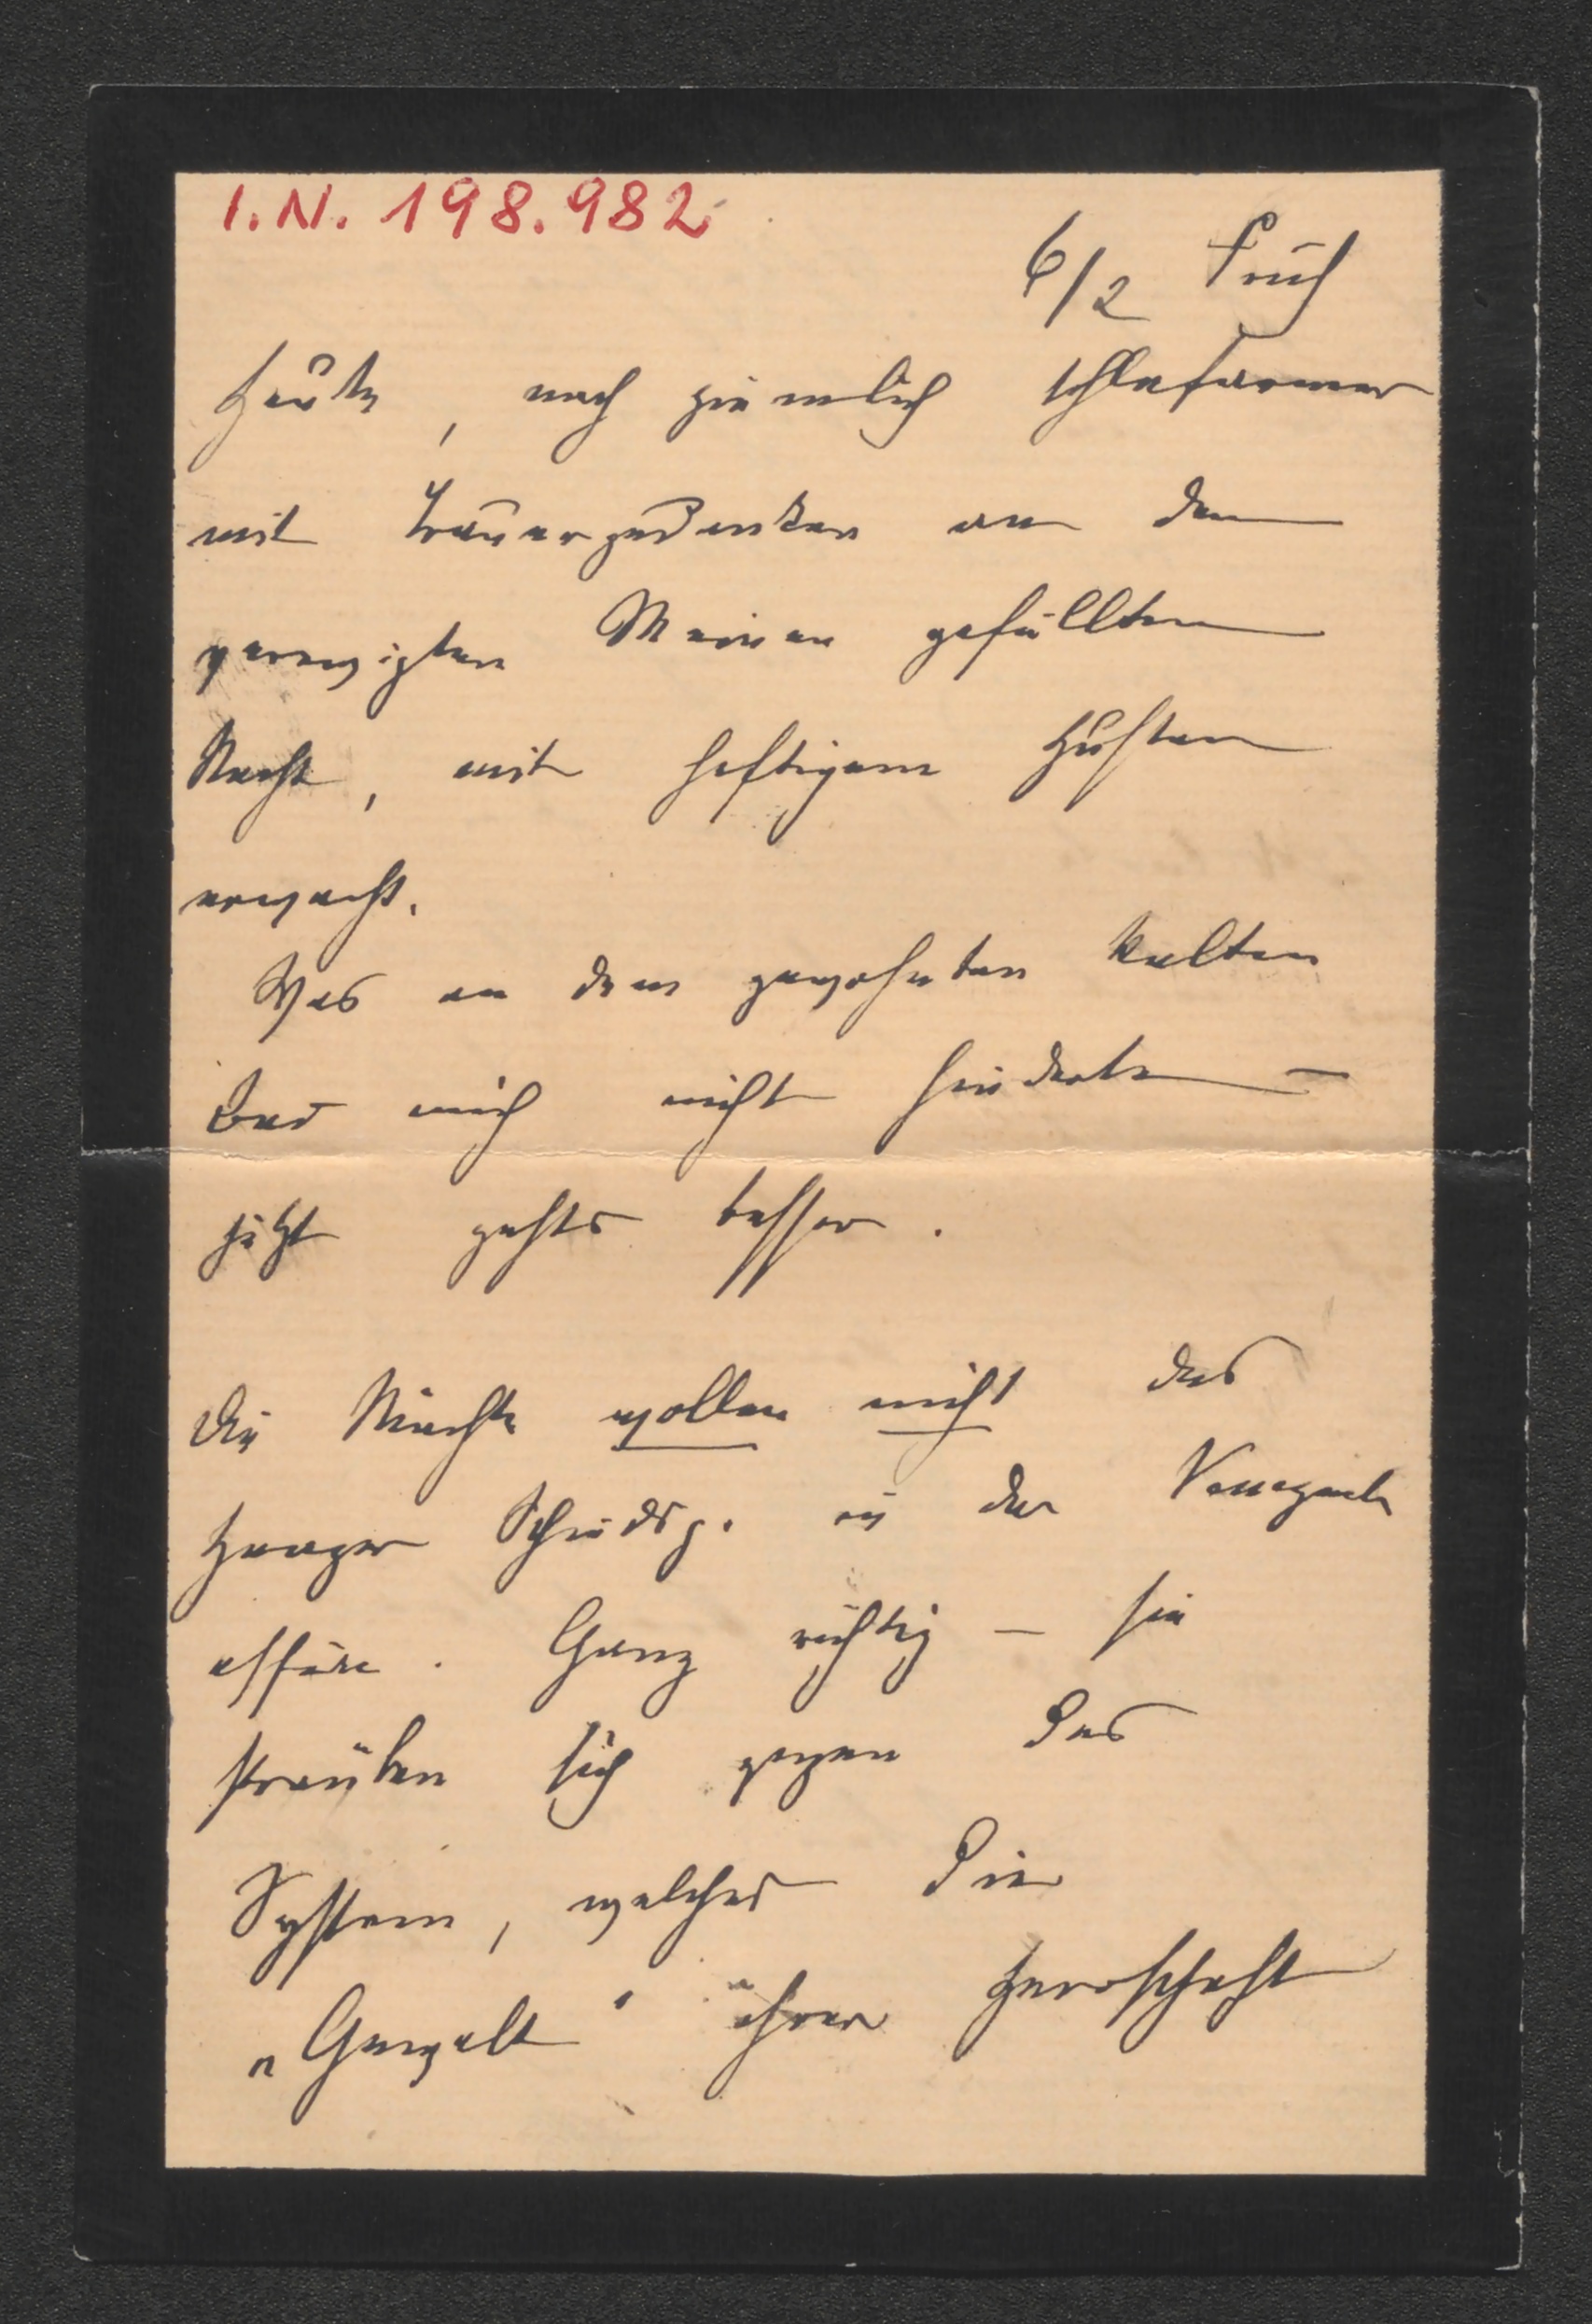 I.N. 198.982
6/2 Früh
Heute, nach ziemlich schlafarmer
mit Trauergedenken an den
verewigten Meinen gefüllten
Nacht, mit heftigem Husten
erwacht.
Was an dem gewohnten kalten
Bad mich nicht hinderte –
jetzt gehts besser.
Die Mächte wollen nicht das
Haager Schiedsg. in der Venezuela
affäre. Ganz richtig – sie
sträuben sich gegen das
System, welches die
„Gewalt“ ihrer Herrschaft